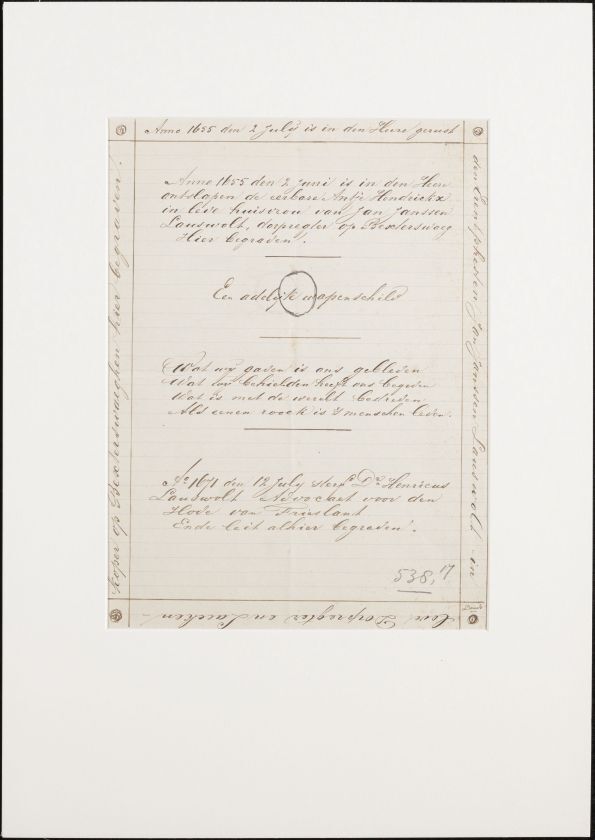 Anno 1655 den 2 July is in den Heere gerust
den Erentphesten Jan Janssen Lauswolt in
leve Dorpregter en Laecken
koper op Bexterswaeghen hier begraven.
Anno 1655 den 2 Juni is in den Heere
ontslapen de eerbare Antje Hendrickx
in leve huisvrou van Jan Janssen
Lauswolt, dorpregter op Bexterswaeg
Hier begraven.
Een adelijk wapenschild
Wat wij gaven is ons gebleven
Wat wij behielden heeft ons begeven
Wat is met de werelt bedreven
Als eenen roock is 's menschen leven.
Ao 1671 den 12 July sterf Dr. Henricus
Lauswolt Advocaet voor den
Hove van Frieslant
Ende leit alhier begraven.
538,17